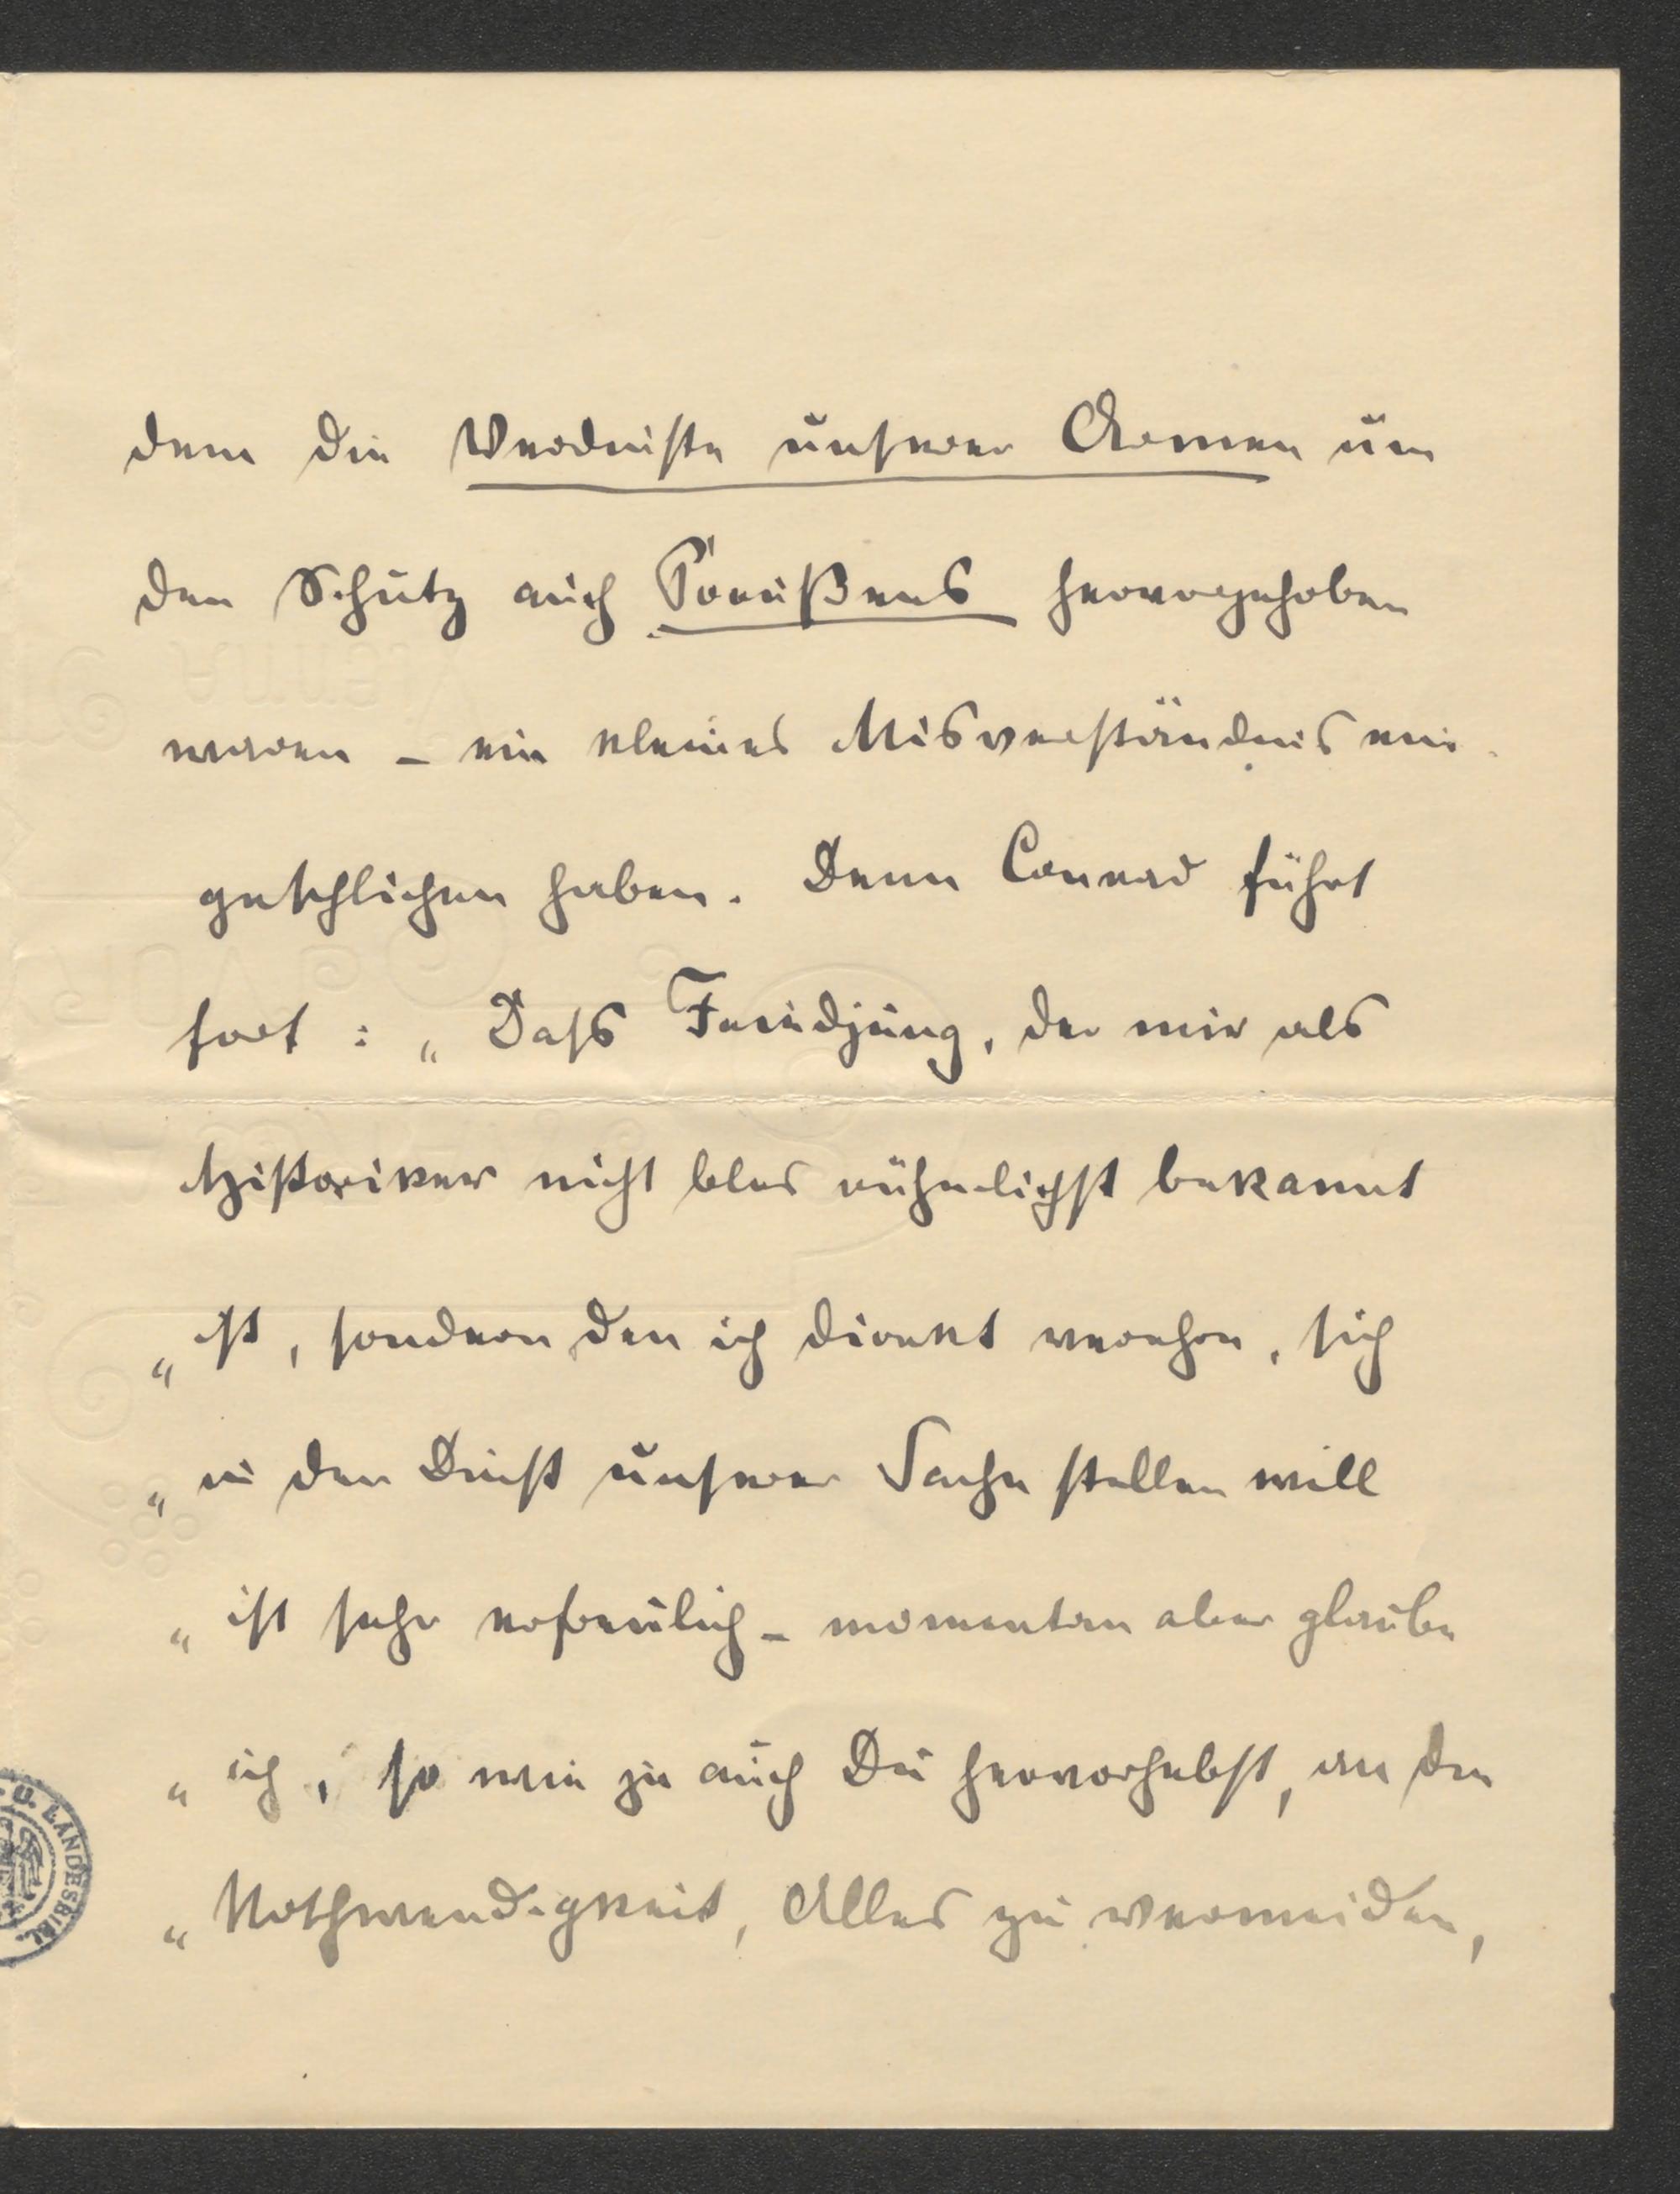 dem die Verdienste unserer Armee um
den Schutz auch Preußens hervorgehoben
waren – ein kleines Misverständnis ein-
geschlichen haben. Denn Conrad führt
fort : „ Dass Friedjung, der mir als
Historiker nicht blos rühmlichst bekannt
„ ist, sondern den ich direkt verehre, sich
„ in den Dienst unserer Sache stellen will
„ ist sehr erfreulich – momentan aber glaube
„ ich, so wie ja auch Du hervorhebst, an die
„ Nothwendigkeit, Alles zu vermeiden,
U. LANDESBIBL.